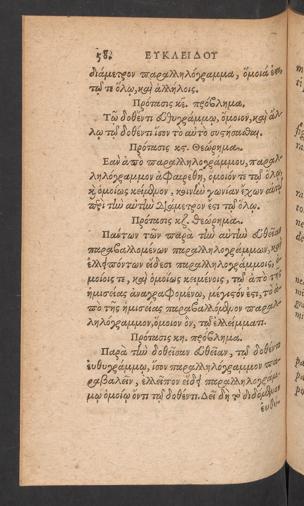 58. ΕΥΚΛΕΙΔΟΥ
διάμετρον παραλληλόγραμμα, ὅμοιά ἐστι
τῷ τε ὅλῳ, καὶ ἀλλήλοις.
Πρότασις κε. πρόβλημα.
Τῷ δοθέντι εὐθυγράμμῳ, ὅμοιον, καὶ ἄλ-
λῳ τῷ δοθέντι ἴσον τὸ αὐτὸ συστήσασθαι.
Πρότασις κς. Θεώρημα.
Ἐὰν ἀπὸ παραλληλογράμμου, παραλ-
ληλόγραμμον ἀφαιρεθῇ, ὅμοιόν τε τῷ ὅλῳ
κ ὁμοίως κείμενον, κοινὴν γωνίαν ἔχον αὐτῷ
περὶ τὴν αὐτὴν διάμετρόν ἐστι τῷ ὅλῳ.
Πρότασις κζ. Θεώρημα.
Πάντων τῶν παρὰ τὴν αὐτὴν εὐθεῖαν
παραβαλλομένων παραλληλογράμμων, καὶ
ἐλλειπόντων εἴδεσι παραλληλογράμμοις, ὁ-
μοίοις τε, καὶ ὁμοίως κειμένοις, τῷ ἀπὸ τῆς
ἡμισείας ἀναγραφομένῳ, μέγιστόν ἐστι, τὸ ἀ-
πὸ τῆς ἡμισείας παραβαλλόμενον παραλ-
ληλόγραμμον, ὅμοιον ὂν, τῷ ἐλλείμματι.
Πρότασις κη. πρόβλημα.
Παρὰ τὴν δοθεῖσαν εὐθεῖαν, τῷ δοθέντι
εὐθυγράμμῳ, ἴσον παραλληλόγραμμον πα-
ραβαλεῖν, ἐλλεῖπον εἴδει παραλληλογράμ-
μῳ ὁμοίῳ ὄντι τῷ δοθέντι. Δεῖ δὴ τὸ διδόμενον
εὐθύ-